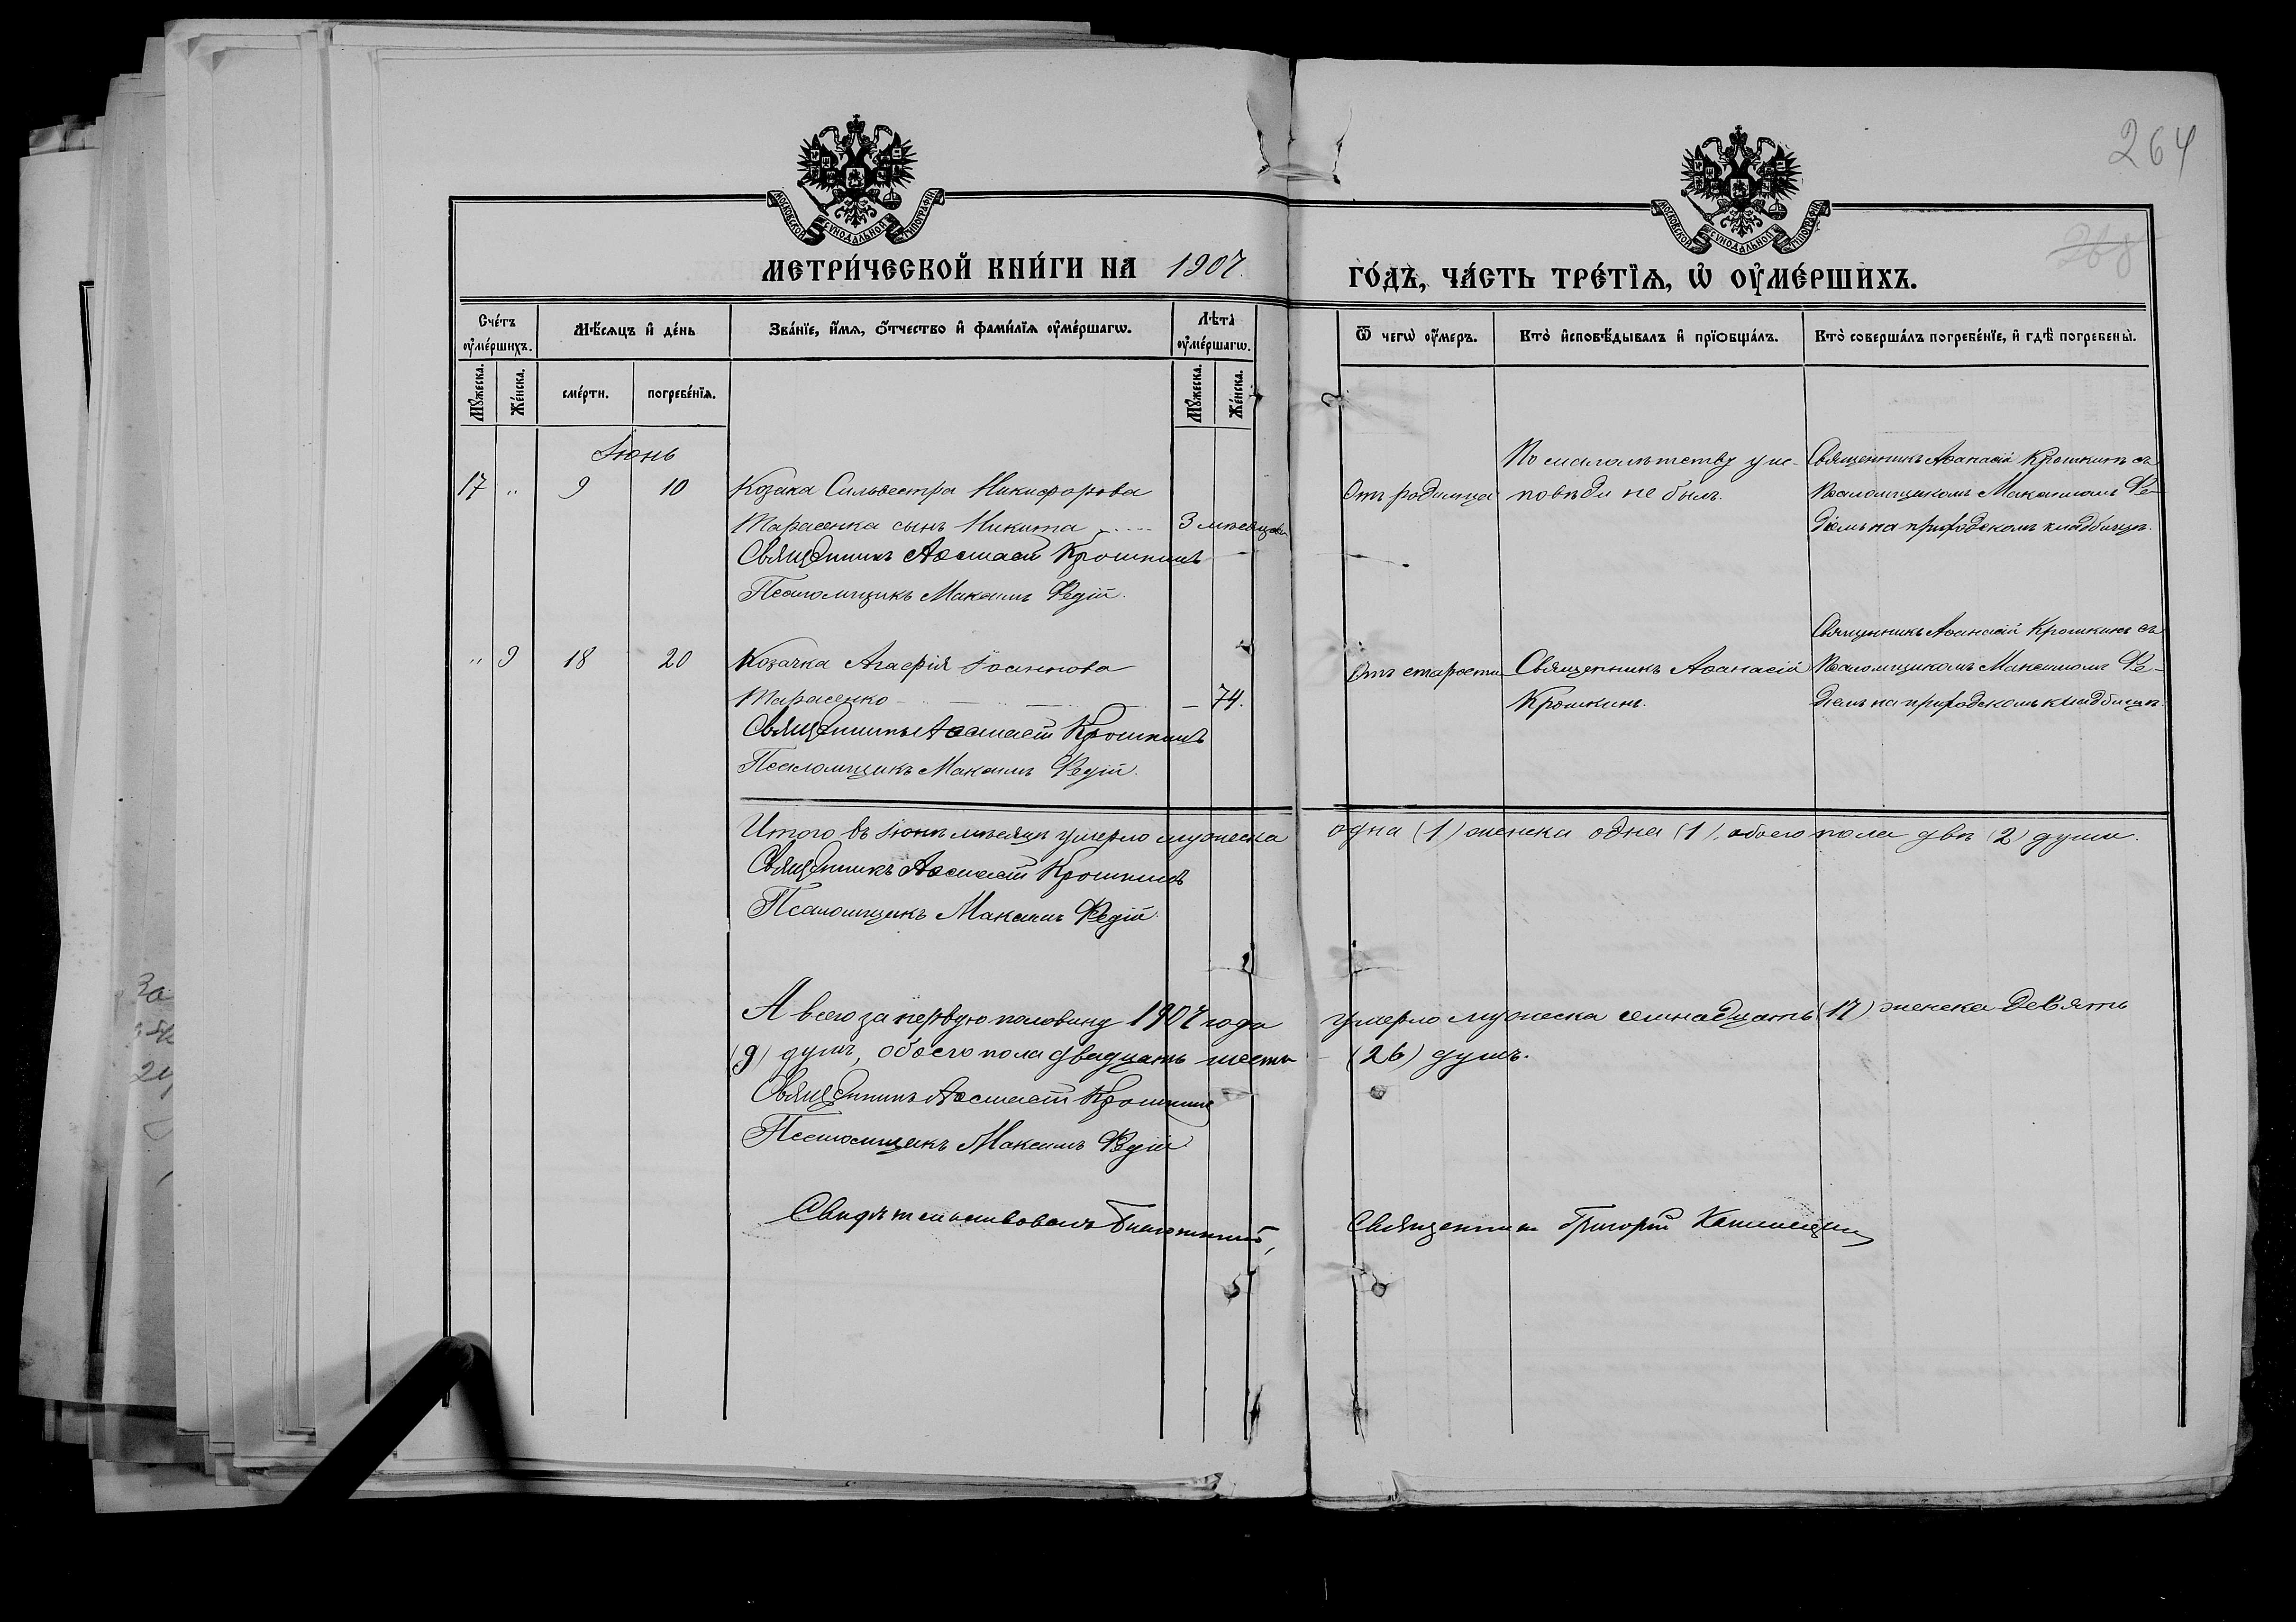 264
МОСКОВСКОЙ СѴНОДАЛЬНОЙ ТИПОГРАФІИ
МОСКОВСКОЙ СѴНОДАЛЬНОЙ ТИПОГРАФІИ
МЕТРИ́ЧЕСКОЙ КНИ́ГИ НА 1907 ГО́ДЪ, ЧА́СТЬ ТРЕ́ТЇѦ, Ѡ҆ ОУ҆МЕ́РШИХЪ.
Сче́тъ оу҆ме́ршихъ.
Мꙋ́жеска.
Же́нска.
Мѣ́сѧцъ и҆ де́нь
сме́рти.
погребе́нїѧ.
Зва́нїе, и҆́мѧ, о҆́тчество и҆ фами́лїѧ оу҆ме́ршагѡ.
Лѣта̀ оу҆ме́ршагѡ.
Мꙋ́жеска.
Же́нска.
Ѿ чегѡ̀ оу҆́меръ.
Кто̀ и҆сповѣ́дывалъ и҆ прїобща́лъ.
Кто̀ соверша́лъ погребе́нїе, и҆ гдѣ̀ погребены̀.
Іюнь
17 " 9 10 Козака Сильвестра Никифорова
Тарасенка сынъ Никита 3 мѣсяца
Священникъ Аѳанасій Крошкинъ
Псаломщикъ Максимъ Ѳедій.
Отъ родимца
По малолѣтству у ис-
повѣди не былъ.
Священникъ Аѳанасій Крошкинъ съ
псаломщикомъ Максимомъ Ѳе-
діемъ на приходскомъ кладбищѣ.
" 9 18 20 Козачка Агафія Іоаннова
Тарасенко 74.
Священникъ Аѳанасій Крошкинъ
Псаломщикъ Максимъ Ѳедій.
Отъ старости
Священникъ Аѳанасій
Крошкинъ.
Священникъ Аѳанасій Крошкинъ съ
псаломщикомъ Максимомъ Ѳе-
діемъ на приходскомъ кладбищѣ.
Итого въ Іюнѣ мѣсяцѣ умерло мужеска одна (1) женска одна (1), обоего пола двѣ (2) души.
Священникъ Аѳанасій Крошкинъ
Псаломщикъ Максимъ Ѳедій.
А всего за первую половину 1907 года умерло мужеска семнадцать (17) женска девять
(9) душъ, обоего пола двадцать шесть (26) душъ.
Священникъ Аѳанасій Крошкинъ
Псаломщикъ Максимъ Ѳедій
Свидѣтельствовалъ Благочинный, Священникъ Григорій